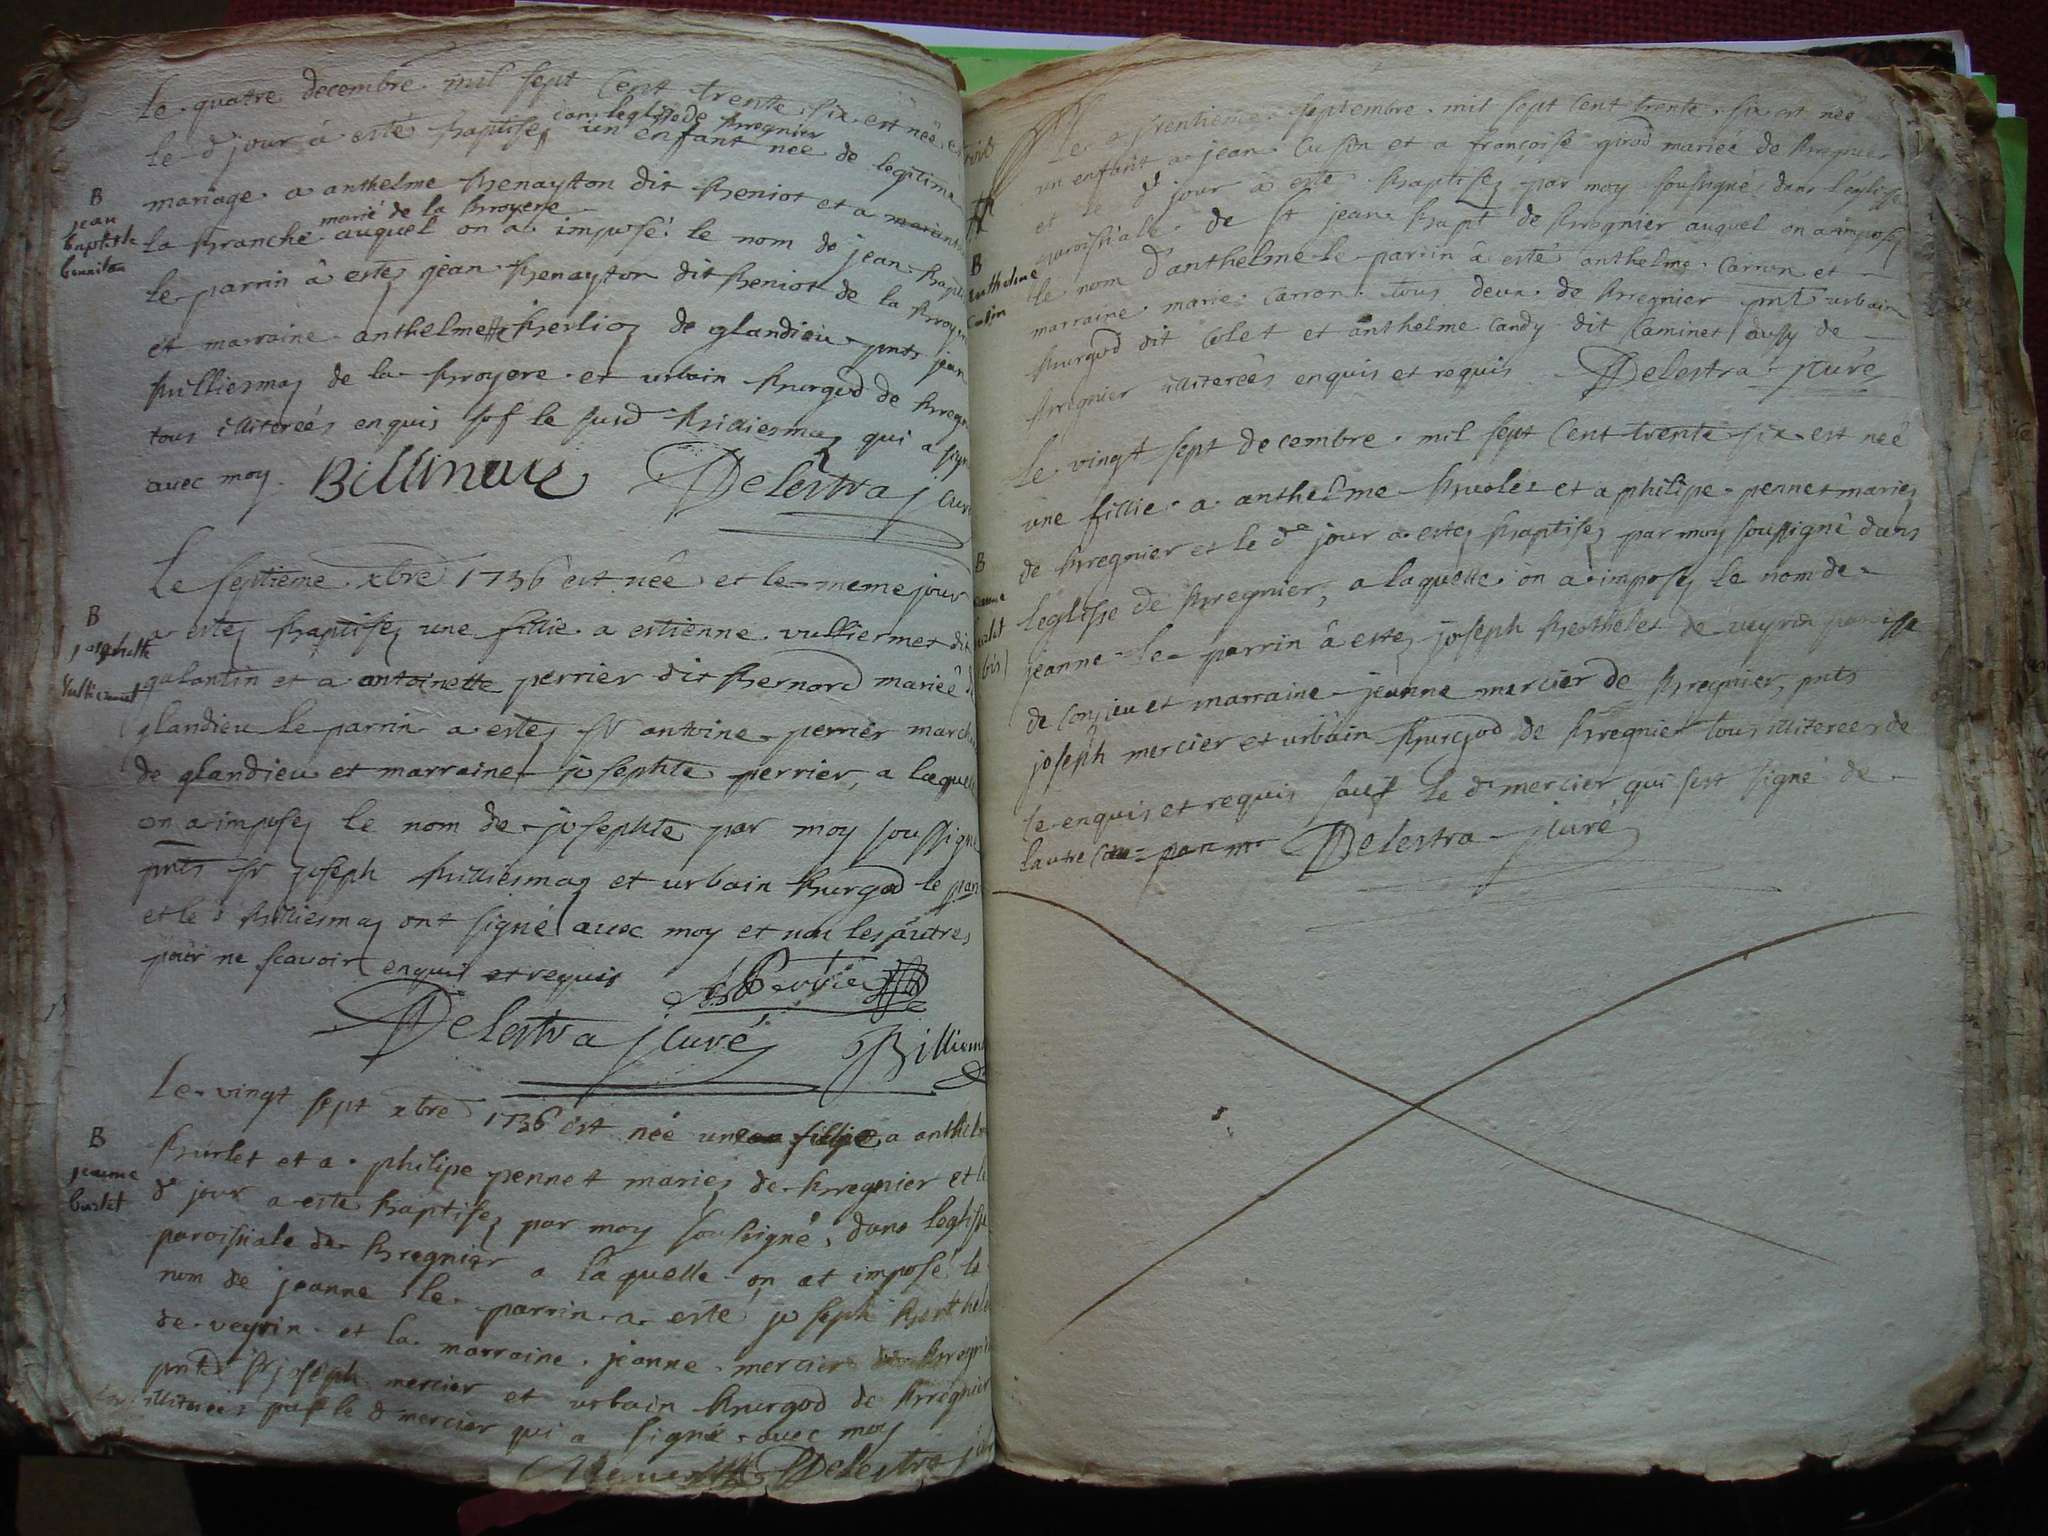 le quatre decembre mil sept cent trente six est neé et
le d jour à esté baptisez dans leglise de bregnier un enfant neé de legitime
mariage a anthelme benayton dit beniot et a
la branche marié de la broyere auquel on a imposé le nom de jean bapt
le parrin à estez jean benayton dit beniot de la broyere
et marraine anthelmette berlioz de glandieu pnts jean
billiemaz de la broyere et urbain burgod de bregnier
tous illitereés enquis sof le susd billiemaz qui a signé
avec moy. Billimaz Delestra j curé
B
jean
baptiste
benaiton
Le septieme xbre 1736 est neé et le meme jour
a estez baptisez une fillie a estienne vulliermet dit
galantin et a antoinette perrier dit bernard marieé de
glandieu le parrin a estez sr antoine perrier march
de glandieu et marraine josephte perrier, a laquelle
on a imposez le nom de josephte par moy soussigné
pnts sr joseph billiemaz et urbain burgod le par
et le s billiemaz ont signé avec moy et non les autres
pour ne scavoir enquis et requis Perrier
Delestra j curé Billiem
B
josephette
Vulliermet
Le vingt sept xbre 1736 est neé une fillie a anthelme
burlet et a philipe pennet mariez de bregnier et le
d jour a esté baptisez par moy soussigné dans leglise
paroissiale de bregnier a laquelle on at imposé le
nom de jeanne le parrin a esté joseph berthelet
de veyrin et la marraine jeanne mercier de bregnier
pnts sr joseph mercier et urbain burgod de bregnier
illitereés sauf le d mercier qui a signé avec moy
Mercier Delestra j curé
B
jeanne
burlet
Le trentieme septembre mil sept cent trente six est neé
un enfant a jean cusin et a françoise girod marieé de bregnier
et le d jour à esté baptisez par moy soussigné dans leglisse
paroissialle de st jean bapt de bregnier auquel on a imposez
le nom d'anthelme le parrin à esté anthelme carron et
marraine marie carron tous deux de bregnier pnt urbain
burgod dit colet et anthelme candy dit caminet aussy de
bregnier illitereés enquis et requis Delestra j curé
B
anthelme
Cusin
Le vingt sept decembre mil sept cent trente six est neé
une fillie a anthelme burlet et a philipe pennet mariez
de bregnier et le d jour a estez baptisez par moy soussigné dans
leglisse de bregnier, a laquelle on a imposez le nom de
jeanne le parrin à estez joseph berthelet de veyrin paroisse
de conzieu et marraine jeanne mercier de bregnier, pnts
joseph mercier et urbain burgod de bregnier tous illitereés de
ce enquis et requis sauf le d mercier qui sest signé de
lautre Delestra j curé
B
jeanne
burlet
(bis)